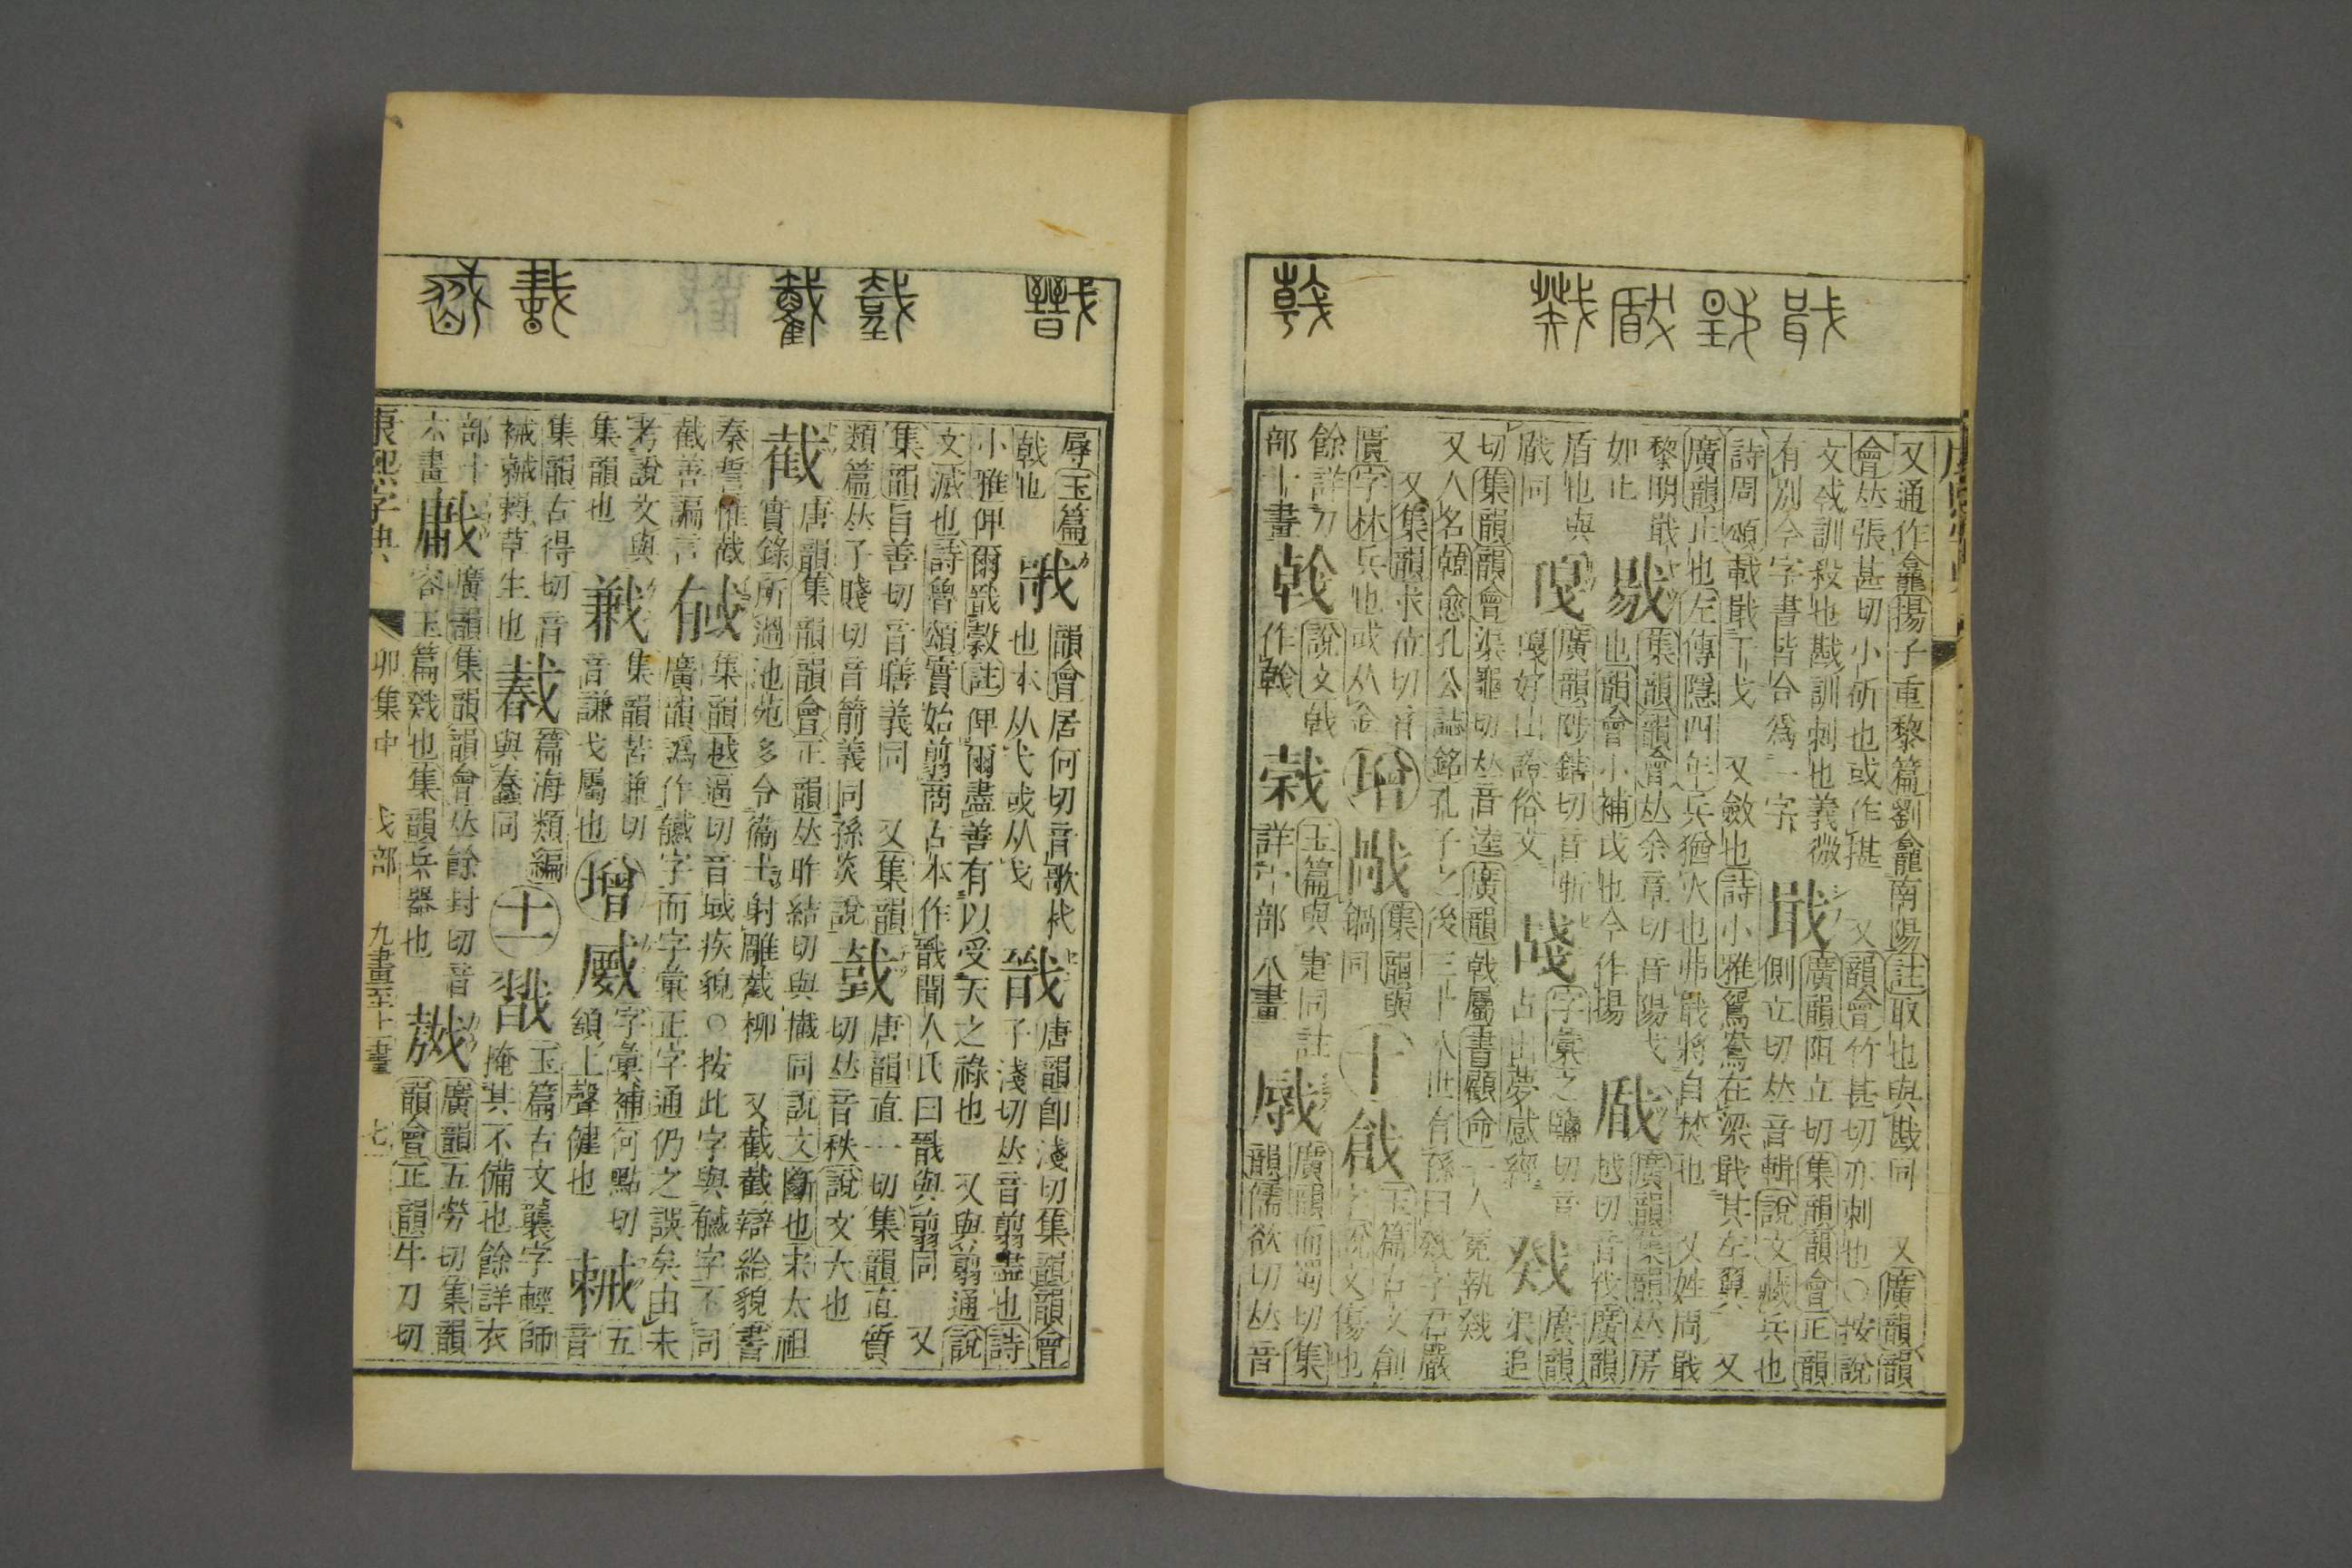 又通作龕揚子重黎篇劉龕南陽註取也與戡同 又廣韻韻
會𠀤張甚切小斫也或作揕 又韻會竹甚切亦刺也○按說
文㦰訓殺也戡訓刺也義微 戢 廣韻阻立切集韻韻會正韻
有別今字書皆合爲一字 側立切𠀤音輯說文藏兵也
詩周頌載戢干戈 又斂也詩小雅鴛鴦在梁戢其左翼 又
廣韻止也左傳隱四年兵猶火也弗戢將自焚也 又姓周戢
黎明戢 集韻韻會𠀤余章切音陽戈 瞂 廣韻集韻𠀤房
如止 也韻會小補戉也今作揚 越切音伐廣韻
盾也與 廣韻陟鎋切音哳 字彙之鹽切音 戣 廣韻
瞂同 戛好山證俗文 占出夢感經 渠追
切集韻韻會渠龜切𠀤音逵廣韻戟屬書顧命一人冕執戣
又人名韓愈孔公誌銘孔子之後三十八世有孫曰戣字君嚴
又集韻求位切音 增 集韻與 十 戧 玉篇古文創
匱字林兵也或从金 鍋同 字說文傷也
餘詳刀 說文戟 玉篇與疐同註 廣韻而蜀切集
部十畫 作 詳疋部八畫 韻儒欲切𠀤音
辱玉篇 戨 韻會居何切音歌杙 戩 唐韻卽淺切集韻韻會
戟也 也本从弋或从戈 子淺切𠀤音翦盡也詩
小雅俾爾戩穀註俾爾盡善有以受天之祿也 又與翦通說
文滅也詩魯頌實始翦商古本作戩聞人氏曰戩與翦同 又
集韻旨善切音 義同 又集韻 唐韻直一切集韻直質
類篇𠀤子賤切音箭義同孫炎說 切𠀤音秩說文大也
截 唐韻集韻韻會正韻𠀤昨結切與 同說文斷也宋太祖
實錄所過池苑多令衞士射雕截柳 又截截辯給貌書
秦誓惟截 集韻越逼切音域疾貌○按此字與馘字不同
截善諞言 廣韻譌作馘字而字彙正字通仍之誤矣由未
考說文與 集韻苦兼切 增 字彙補何黠切 五
集韻也 音謙戈屬也 額上聲健也 音
集韻古得切音 篇海類編 十一 玉篇古文襲字輕師
草生也 與蠢同 掩其不備也餘詳衣
部十 廣韻集韻韻會𠀤餘封切音 廣韻五勞切集韻
六畫 容玉篇戣也集韻兵器也 韻會正韻牛刀切
康熙字典 卯集中 戈部 九畫至十一畫